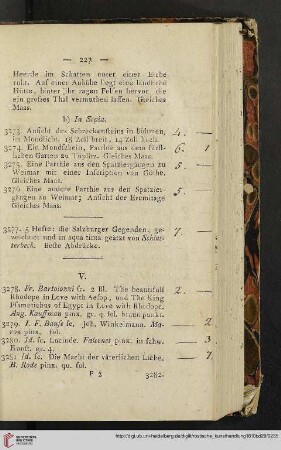 — 227 —
Heerde im Schatten unter einer Eiche
ruht. Auf einer Anhöhe liegt eine ländliche
Hütte, hinter ihr ragen Felsen hervor, die
ein großes Thal vermuthen lassen. Gleiches
Maas.
b) In Sepia.
3273. Ansicht des Schreckensteins in Böhmen,
im Mondlicht. 18 Zoll breit, 14 Zoll hoch. 4. —
3274. Ein Mondschein, Parthie aus dem fürstl.
lichen Garten zu Töplitz. Gleiches Maas. 6. 1
3275. Eine Parthie aus den Spatziergängen zu
Weimar mit einer Inscription von Göthe.
Gleiches Maas. 5 —
3276. Eine andere Parthie aus den Spatzier-
gängen zu Weimar; Ansicht der Eremitage
Gleiches Maas. 5 —
3277. 5 Hefte: die Salzburger Gegenden, ge-
zeichnet und in aqua tinta geätzt von
Beste Abdrücke. 7 —
V.
3278. Fr. Bartolozzi sc. 2 Bl. The beautifull
Rhodope in Love with Aesop, und The King
Psametichus of Egypt in Love with Rhodope.
Ang. Kauffman pinx. gr. 4. fol. braun punkt. 2 —
3279. I. F. Bause sc. Joh. Winkelmann. Ma-
ron pinx. fol. — 2
3280. Id. sc. Lucinde. Falconet pinx. in schw.
Kunst. gr. 4. — 3.
3281. Id. sc. Die Macht der väterlichen Liebe.
B. Rode pinx. qu. fol. — 7
P 2
3282.